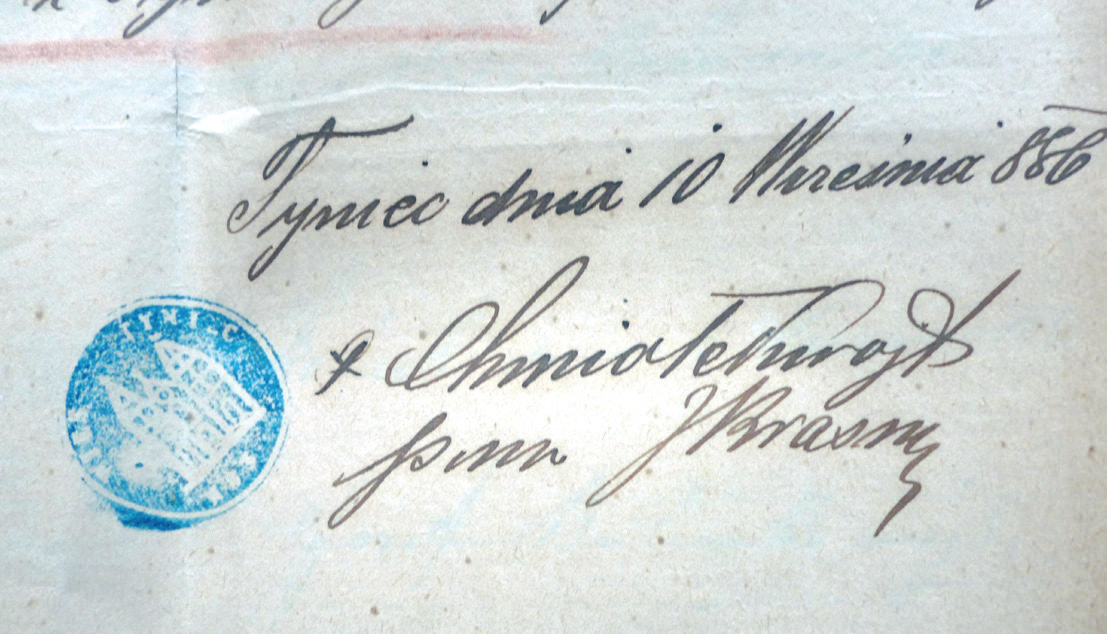 Tyniec dnia 10 Września 886
+ Chmiolek wojt
JKrasny
TYNIEC